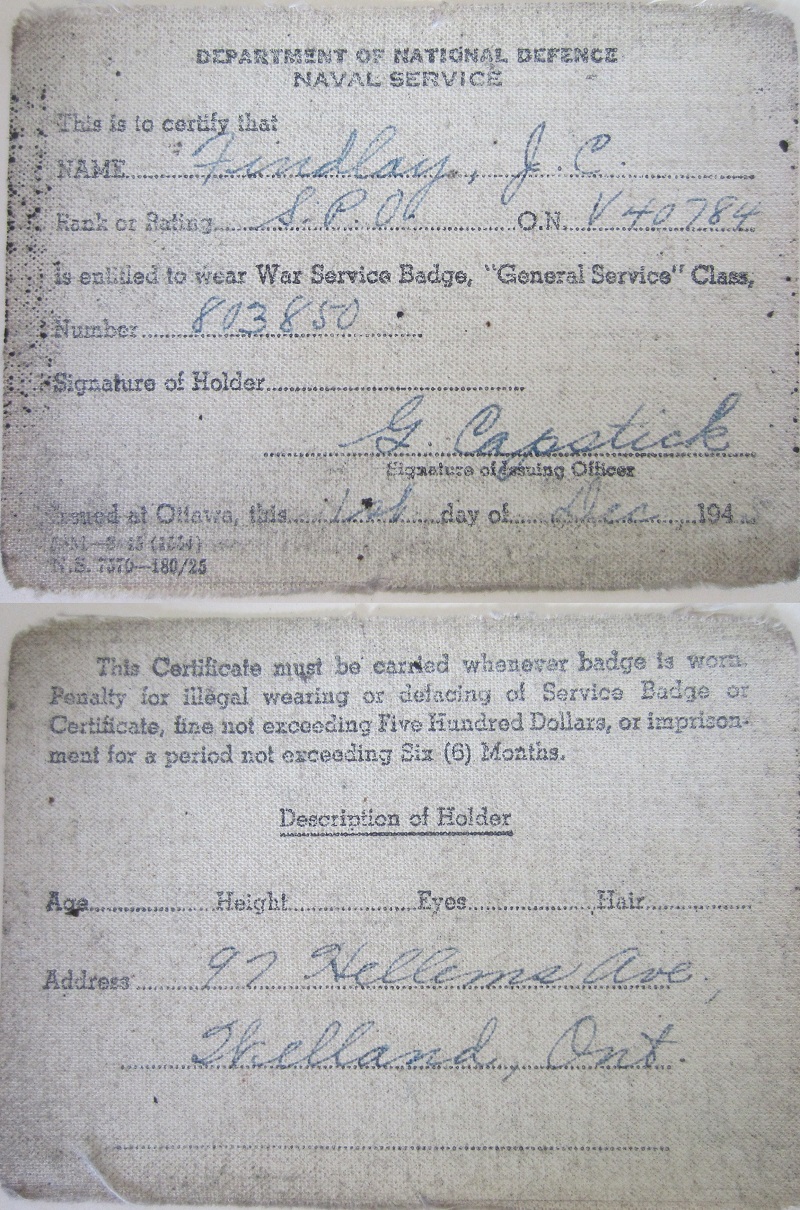 DEPARTMENT OF NATIONAL DEFENCE
NAVAL SERVICE
This is to certify that
NAME Findlay, J. C.
Rank or Rating S.P.O. O.N. V 40784
is entitled to wear War Service Badge, "General Service" Class,
Number 803850
Signature of Holder
G. Capstick
Signature of Issuing Officer
Issued at Ottawa, this 1st day of Dec 194
N.S. 7570—180/25
This Certificate must be carried whenever badge is worn.
Penalty for illegal wearing or defacing of Service Badge or
Certificate, fine not exceeding Five Hundred Dollars, or imprison-
ment for a period not exceeding Six (6) Months.
Description of Holder
Age Height Eyes Hair
Address 97 Hellems Ave.,
Welland, Ont.